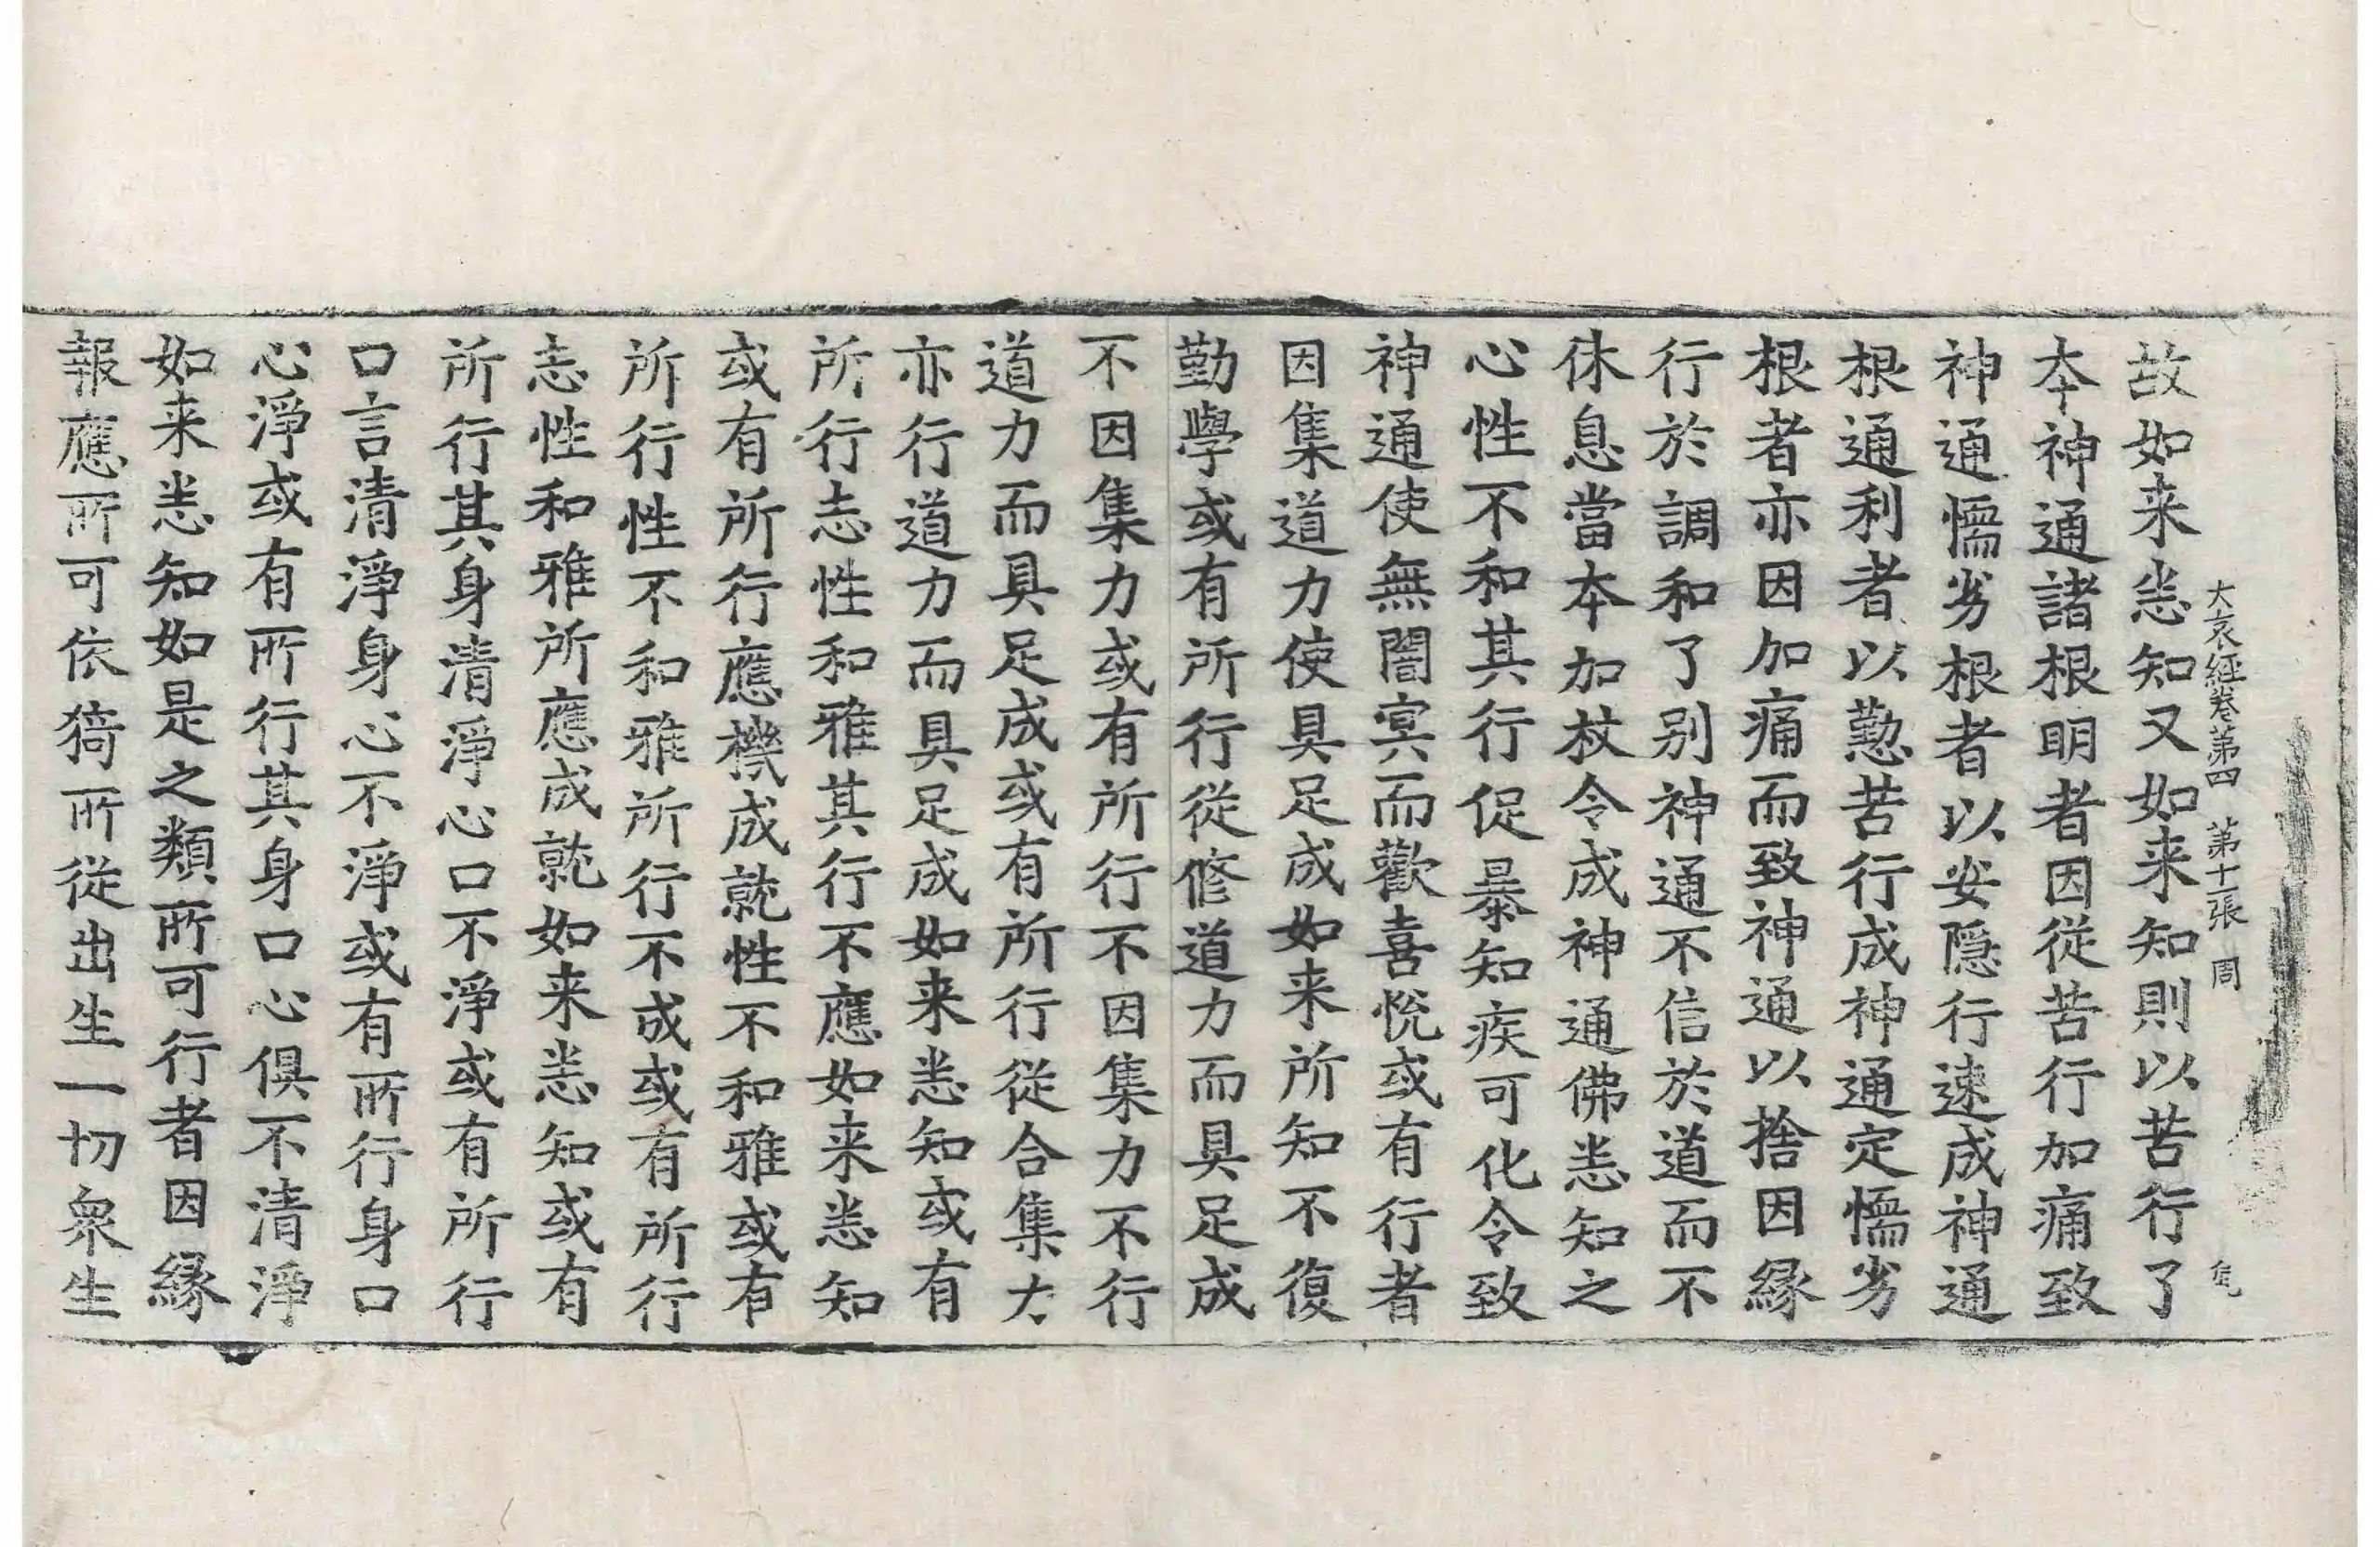 大哀經卷第四　第十二張　周
故如来悉知又如来知則以苦行了
本神通諸根明者因從苦行加痛致
神通懦劣根者以安隱行速成神通
根通利者以懃苦行成神通定懦劣
根者亦因加痛而致神通以捨因縁
行於調和了别神通不信於道而不
休息當本加杖令成神通佛悉知之
心性不和其行促暴知疾可化令致
神通使無闇冥而歡喜悅或有行者
因集道力使具足成如来所知不復
勤學或有所行從修道力而具足成
不因集力或有所行不因集力不行
道力而具足成或有所行從合集大
亦行道力而具足成如来悉知或有
所行志性和雅其行不應如来悉知
或有所行應機成就性不和雅或有
所行性不和雅所行不成或有所行
志性和雅所應成就如来悉知或有
所行其身清淨心口不淨或有所行
口言清淨身心不淨或有所行身口
心淨或有所行其身口心俱不清淨
如来悉知如是之類所可行者因縁
報應所可依猗所從出生一切衆生